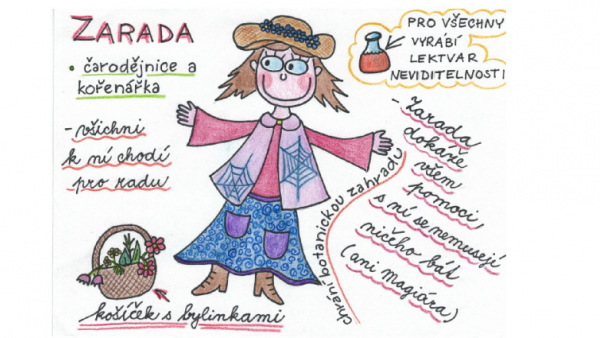 ZARADA
• čarodějnice a
kořenářka
- všichni
k ní chodí
pro radu
košíček s bylinkami
PRO VŠECHNY
VYRÁBÍ
LEKTVAR
NEVIDITELNOSTI
chrání botanickou zahradu
- Zarada
dokáže
všem
pomoci,
s ní se nemusejí
ničeho bát
(ani magiára)